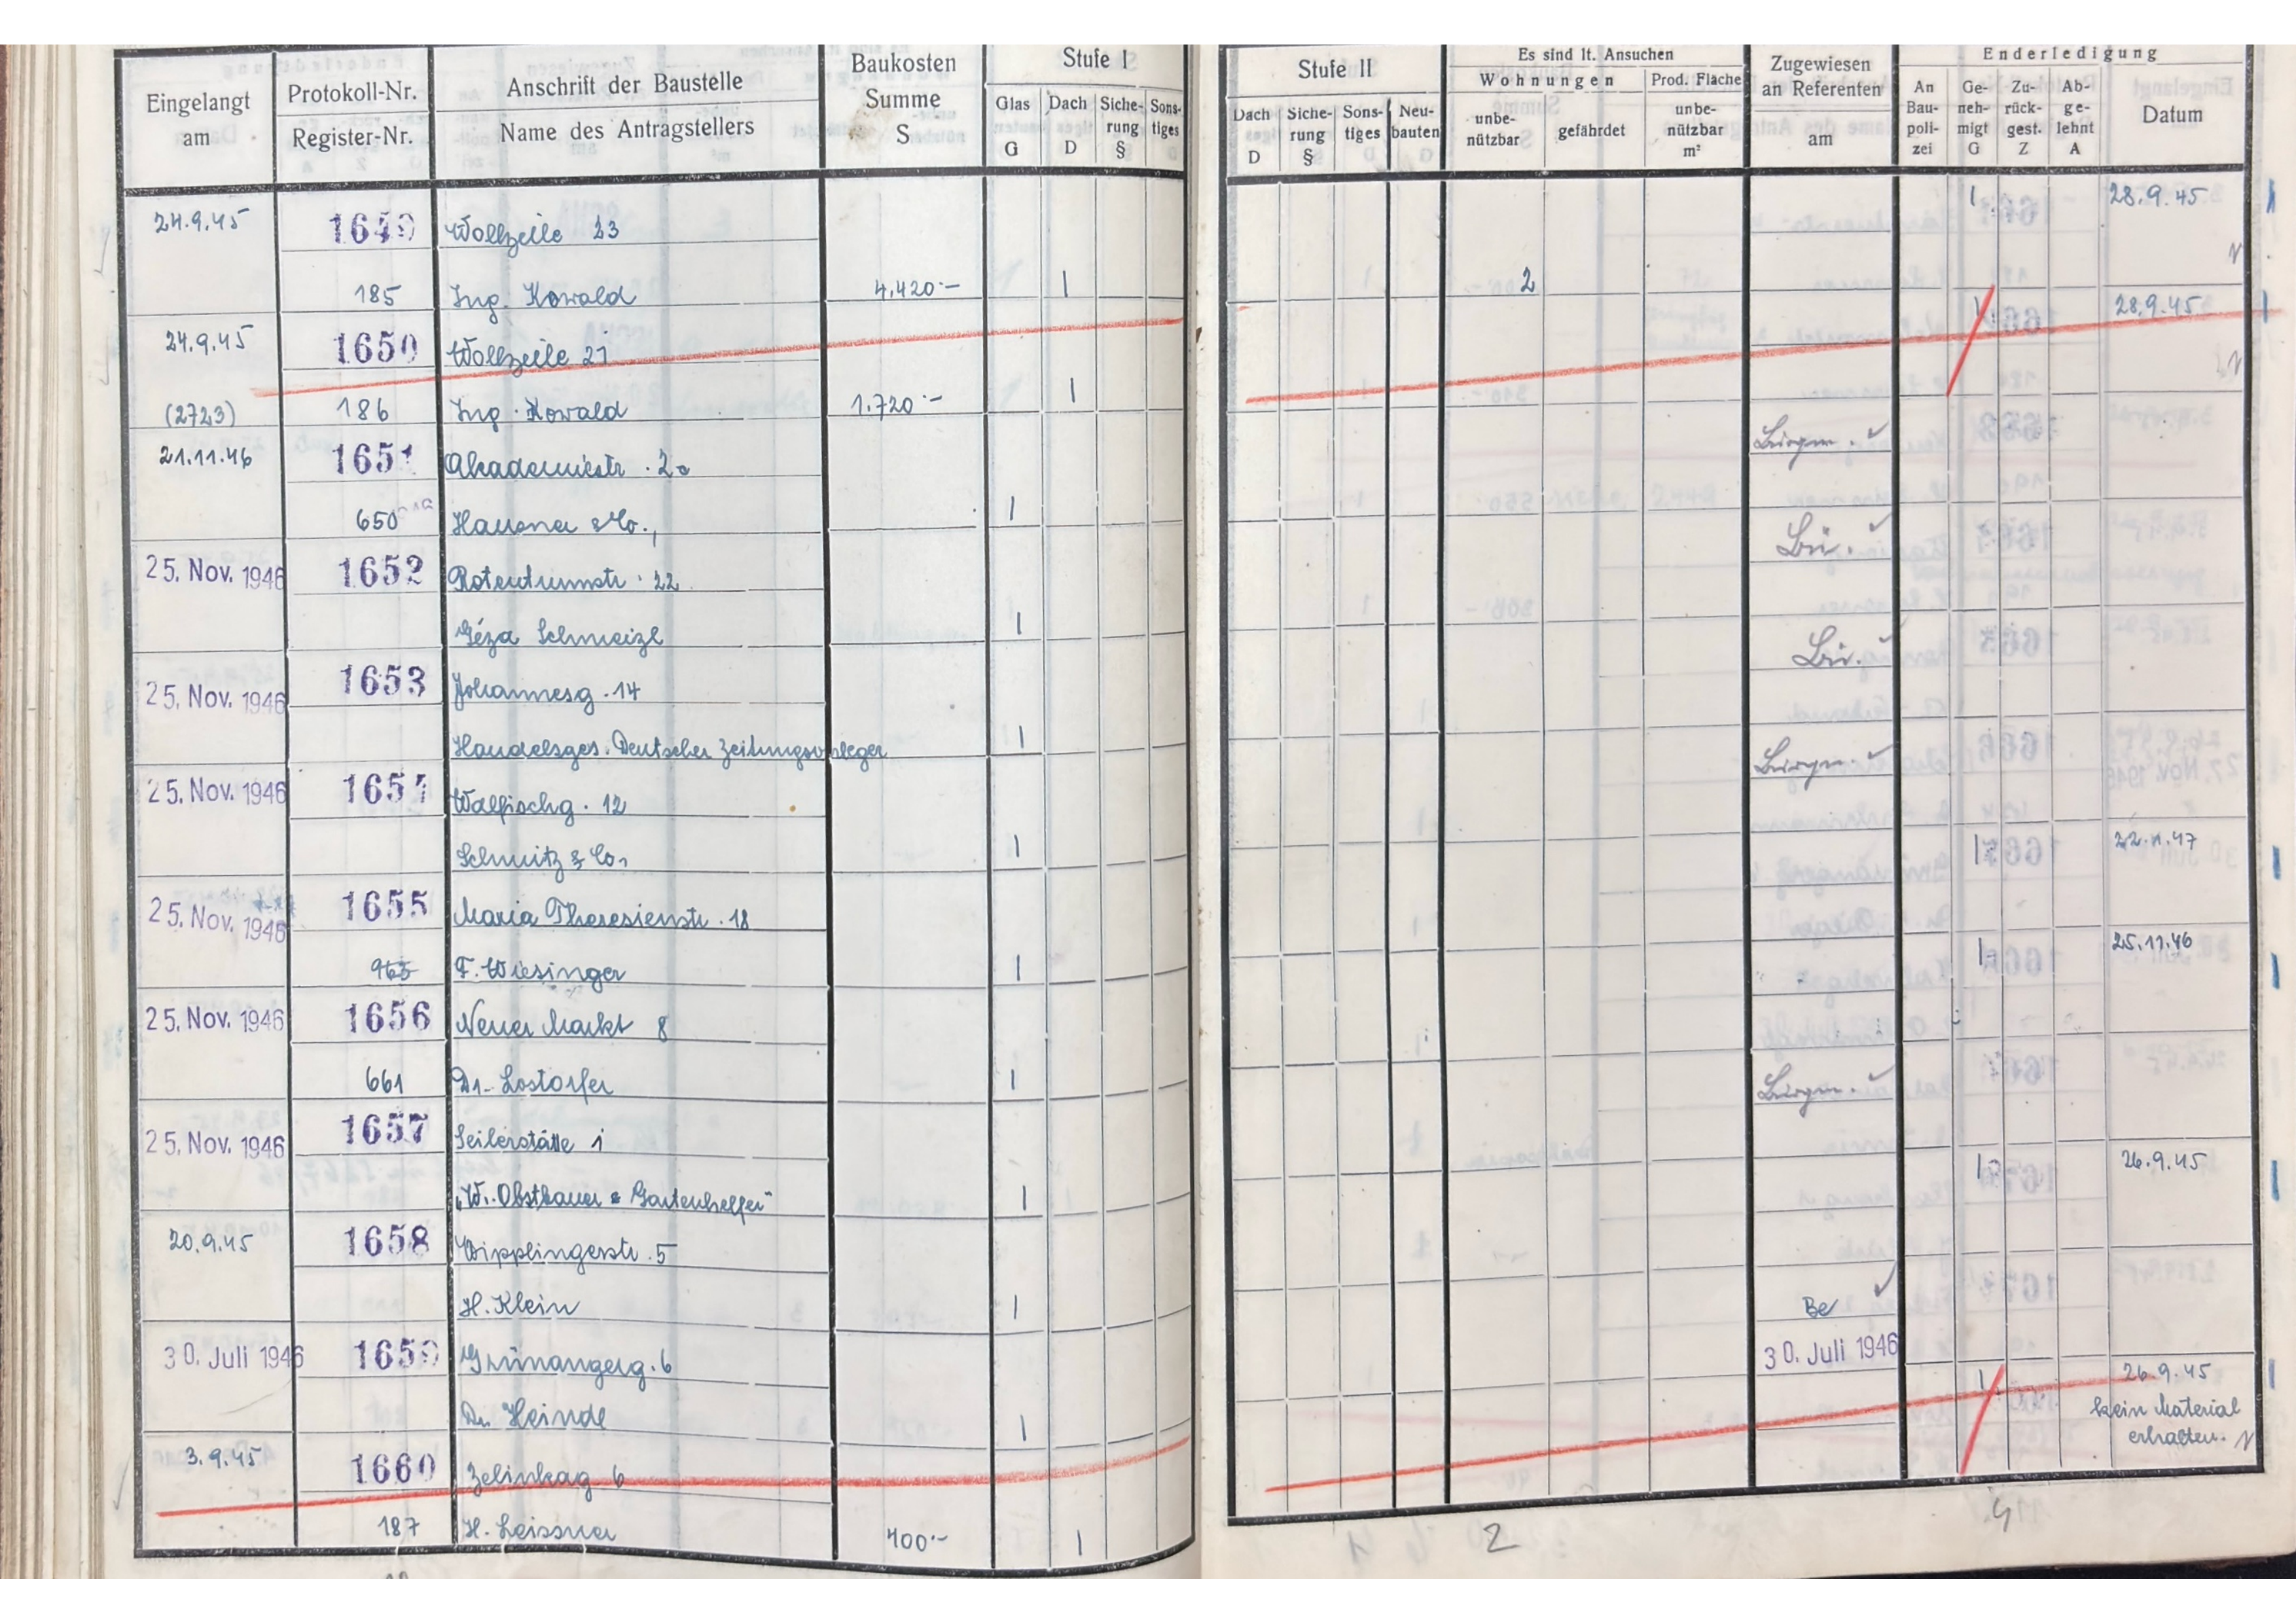 Eingelangt am
Protokoll-Nr.
Register-Nr.
Anschrift der Baustelle
Name des Antragstellers
Baukosten Summe S
Stufe I
Glas G
Dach D
Siche-rung §
Sons-tiges
Stufe II
Dach D
Siche-rung §
Sons-tiges
Neu-bauten
Es sind lt. Ansuchen
Wohnungen
unbe-nützbar
gefährdet
Prod. Fläche
unbe-nützbar m²
Zugewiesen an Referenten am
Enderledigung
An Bau-poli-zei
Ge-neh-migt G
Zu-rück-gest. Z
Ab-ge-lehnt A
Datum
24.9.45 1649 Wollzeile 23 1 28.9.45
185 Ing. Kowald 4.420.- 1 2
24.9.45 1650 Wollzeile 21 1 28.9.45
(2723) 186 Ing. Kowald 1.720.- 1
21.11.46 1651 Akademiestr. 2a Bürgm. ✓
650 Hausner & Co., 1
25. Nov. 1946 1652 Rotenturmstr. 22 Bü. ✓
Géza Schmeizl 1
25. Nov. 1946 1653 Johannesg. 14 Bü. ✓
Handelsges. Deutscher Zeitungsverleger 1
25. Nov. 1946 1654 Walfischg. 12 Bürgm. ✓
Schmitz & Co, 1
25. Nov. 1946 1655 Maria Theresienstr. 18 1 22.1.47
965 F. Wiesinger 1
25. Nov. 1946 1656 Neuer Markt 8 1 25.11.46
661 Dr. Lostorfer 1
25. Nov. 1946 1657 Seilerstätte 1 Bürgm. ✓
"W. Obstbauer & Gartenhelfer" 1
20.9.45 1658 Wipplingerstr. 5 1 26.9.45
H. Klein 1
30. Juli 1946 1659 Grünangerg. 6 Be ✓ 30. Juli 1946
Dr. Heindl 1
3.9.45 1660 Zelinkag 6 1 26.9.45
kein Material
erhalten.
187 H. Leissner 400.- 1
2 4